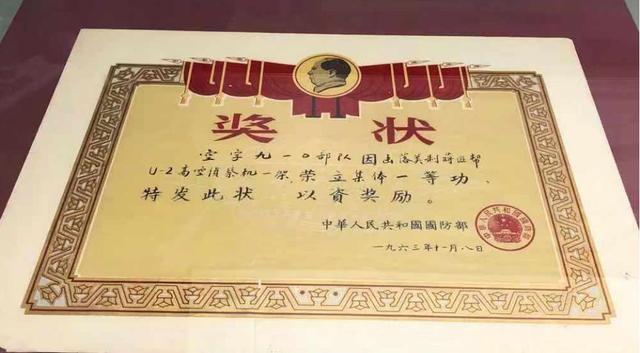 奖状
空字九一〇部队因击落美制蒋匪帮
U-2高空侦察机一架,荣立集体一等功、
特发此状 以資奖励。
中華人民共和國國防部
一九六三年十一月八日